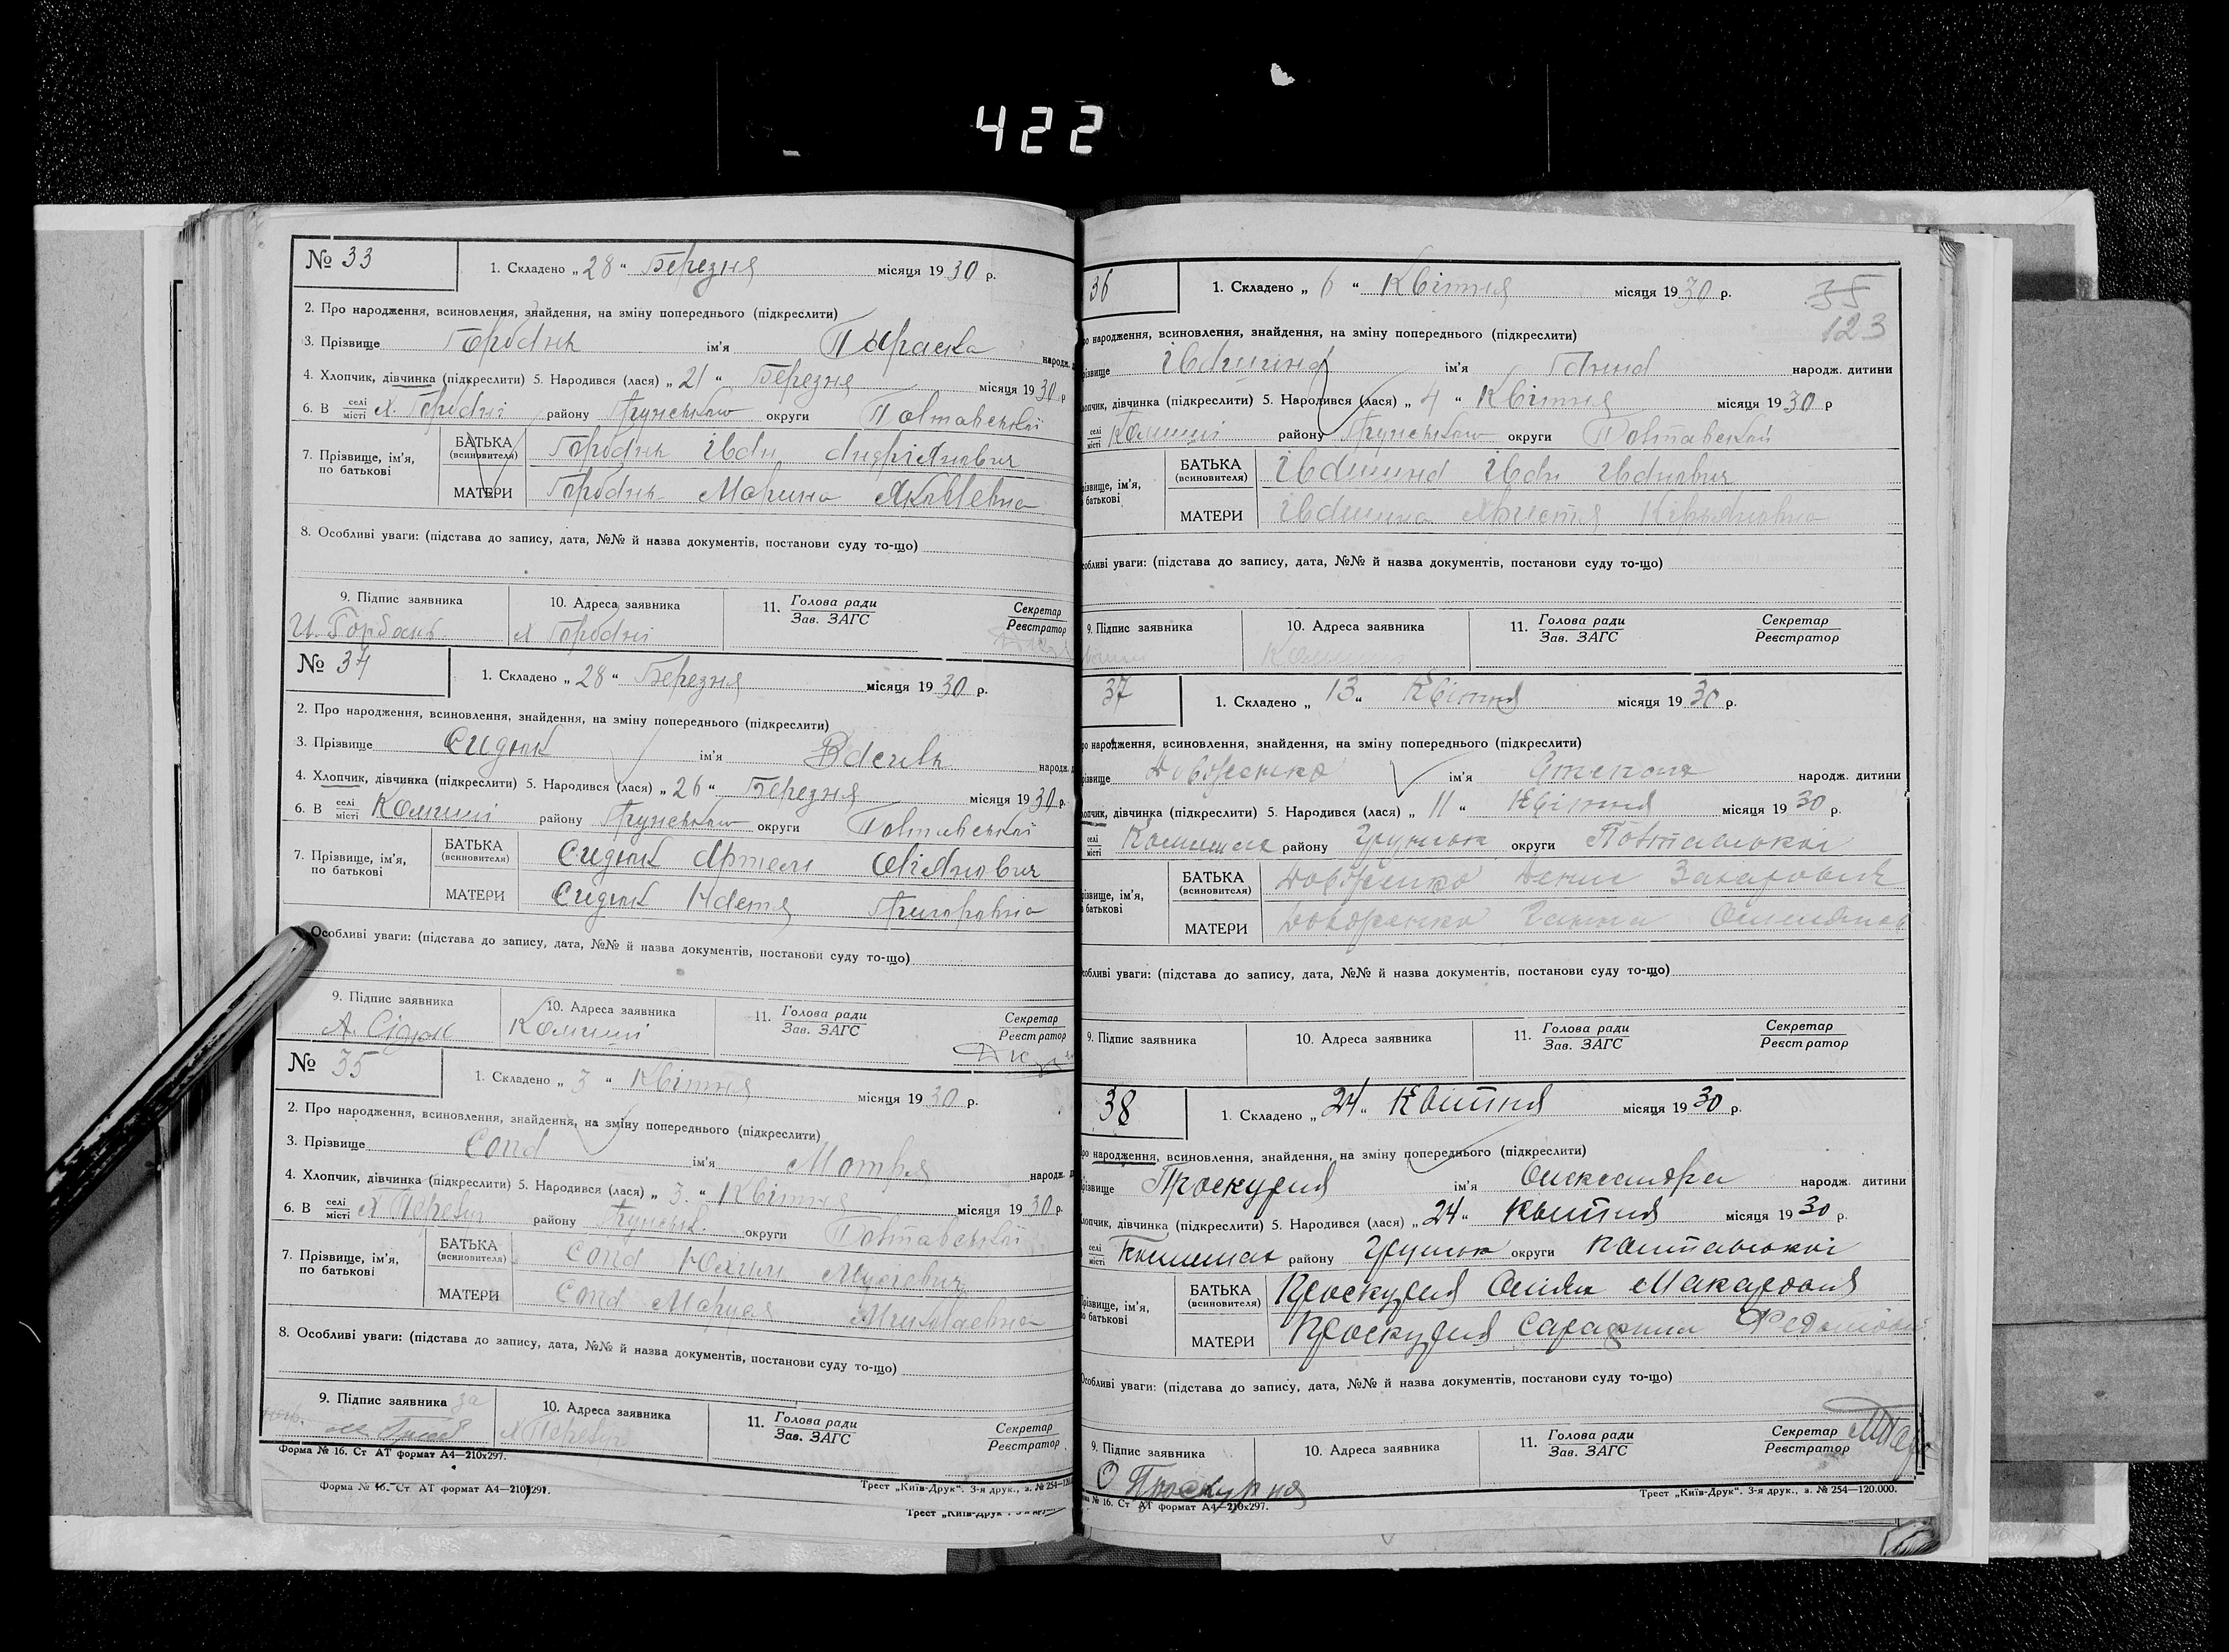 422
№ 33
1. Складено „ 28 “ Березня місяця 19 30 р.
2. Про народження, всиновлення, знайдення, на зміну попереднього (підкреслити)
3. Прізвище Горбань ім'я Параска народж. д
4. Хлопчик, дівчинка (підкреслити) 5. Народився (лася) „ 21 “ Березня місяця 19 30 р
6. В селі місті х. Горбані району Грунському округи Полтавської
7. Прізвище, ім'я, по батькові
БАТЬКА (всиновителя) Горбань Іван Андріянович
МАТЕРИ Горбань Марина Яковлевна
8. Особливі уваги: (підстава до запису, дата, №№ й назва документів, постанови суду то-що)
9. Підпис заявника 10. Адреса заявника 11. Голова ради Зав. ЗАГС Секретар Реєстратор
И. Горбань х Горбані
№ 34
1. Складено „ 28 “ Березня місяця 19 30 р.
2. Про народження, всиновлення, знайдення, на зміну попереднього (підкреслити)
3. Прізвище Сидюк ім'я Василь народж. д
4. Хлопчик, дівчинка (підкреслити) 5. Народився (лася) „ 26 “ Березня місяця 19 30 р.
6. В селі місті Комиші району округи Полтавської
7. Прізвище, ім'я, по батькові
БАТЬКА (всиновителя) Сидюк Артем
МАТЕРИ Сидюк Настя Григоровна
Особливі уваги: (підстава до запису, дата, №№ й назва документів, постанови суду то-що)
9. Підпис заявника 10. Адреса заявника 11. Голова ради Зав. ЗАГС Секретар Реєстратор
А. Сідюк Комиші
№ 35
1. Складено „ 3 “ Квітня місяця 19 30 р.
2. Про народження, всиновлення, знайдення, на зміну попереднього (підкреслити)
3. Прізвище Сопа ім'я Мотря народж. д
4. Хлопчик, дівчинка (підкреслити) 5. Народився (лася) „ 3. “ Квітня місяця 19 30 р.
6. В селі місті х району округи Полтавської
7. Прізвище, ім'я, по батькові
БАТЬКА (всиновителя) Сопа Юхим Мусієвич
МАТЕРИ Сопа Маруся Миколаевна
8. Особливі уваги: (підстава до запису, дата, №№ й назва документів, постанови суду то-що)
9. Підпис заявника за 10. Адреса заявника 11. Голова ради Зав. ЗАГС Секретар Реєстратор
Форма № 16. Ст АТ формат А4—210х297.
Форма № 16. Ст АТ формат А4—210х297. Трест „Київ-Друк“. 3-я друк., з. № 254—120
36
1. Складено „ 6 “ Квітня місяця 19 30 р.
35
123
народження, всиновлення, знайдення, на зміну попереднього (підкреслити)
різвище Івашина ім'я Ганна народж. дитини
дівчинка (підкреслити) 5. Народився (лася) „ 4 “ Квітня місяця 19 30 р
селі місті Комиші району округи Полтавської
БАТЬКА (всиновителя) Івашина Іван Іванович
МАТЕРИ Івашина Христя
уваги: (підстава до запису, дата, №№ й назва документів, постанови суду то-що)
9. Підпис заявника 10. Адреса заявника 11. Голова ради Зав. ЗАГС Секретар Реєстратор
Комиші
37
1. Складено „ 13 “ Квітня місяця 19 30 р.
народження, всиновлення, знайдення, на зміну попереднього (підкреслити)
Довженко ім'я Степан народж. дитини
дівчинка (підкреслити) 5. Народився (лася) „ 11 “ Квітня місяця 19 30 р.
селі місті району округи Полтавської
БАТЬКА (всиновителя) Довженко Денис Захарович
МАТЕРИ Довженко Ганна
уваги: (підстава до запису, дата, №№ й назва документів, постанови суду то-що)
9. Підпис заявника 10. Адреса заявника 11. Голова ради Зав. ЗАГС Секретар Реєстратор
38
1. Складено „ 24 “ Квітня місяця 19 30 р.
народження, всиновлення, знайдення, на зміну попереднього (підкреслити)
Проскурня ім'я Олександра народж. дитини
дівчинка (підкреслити) 5. Народився (лася) „ 24 “ Квітня місяця 19 30 р.
селі місті району округи Полтавської
БАТЬКА (всиновителя) Проскурня Омілян Макарович
МАТЕРИ Проскурня
Особливі уваги: (підстава до запису, дата, №№ й назва документів, постанови суду то-що)
9. Підпис заявника 10. Адреса заявника 11. Голова ради Зав. ЗАГС Секретар Реєстратор
О Проскурня
№ 16. Ст АТ формат А4—210х297. Трест „Київ-Друк“. 3-я друк., з. № 254—120.000.